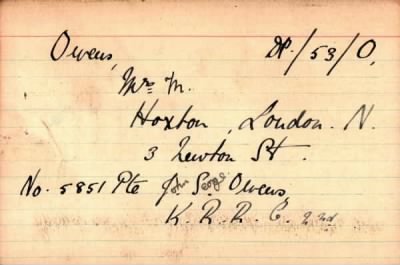 Owens, DP./53/O,
Mrs M.
Hoxton, London. N.
3 Newton St.
No. 5851 Pte J. John George Owens,
K. R. R. C. 22nd